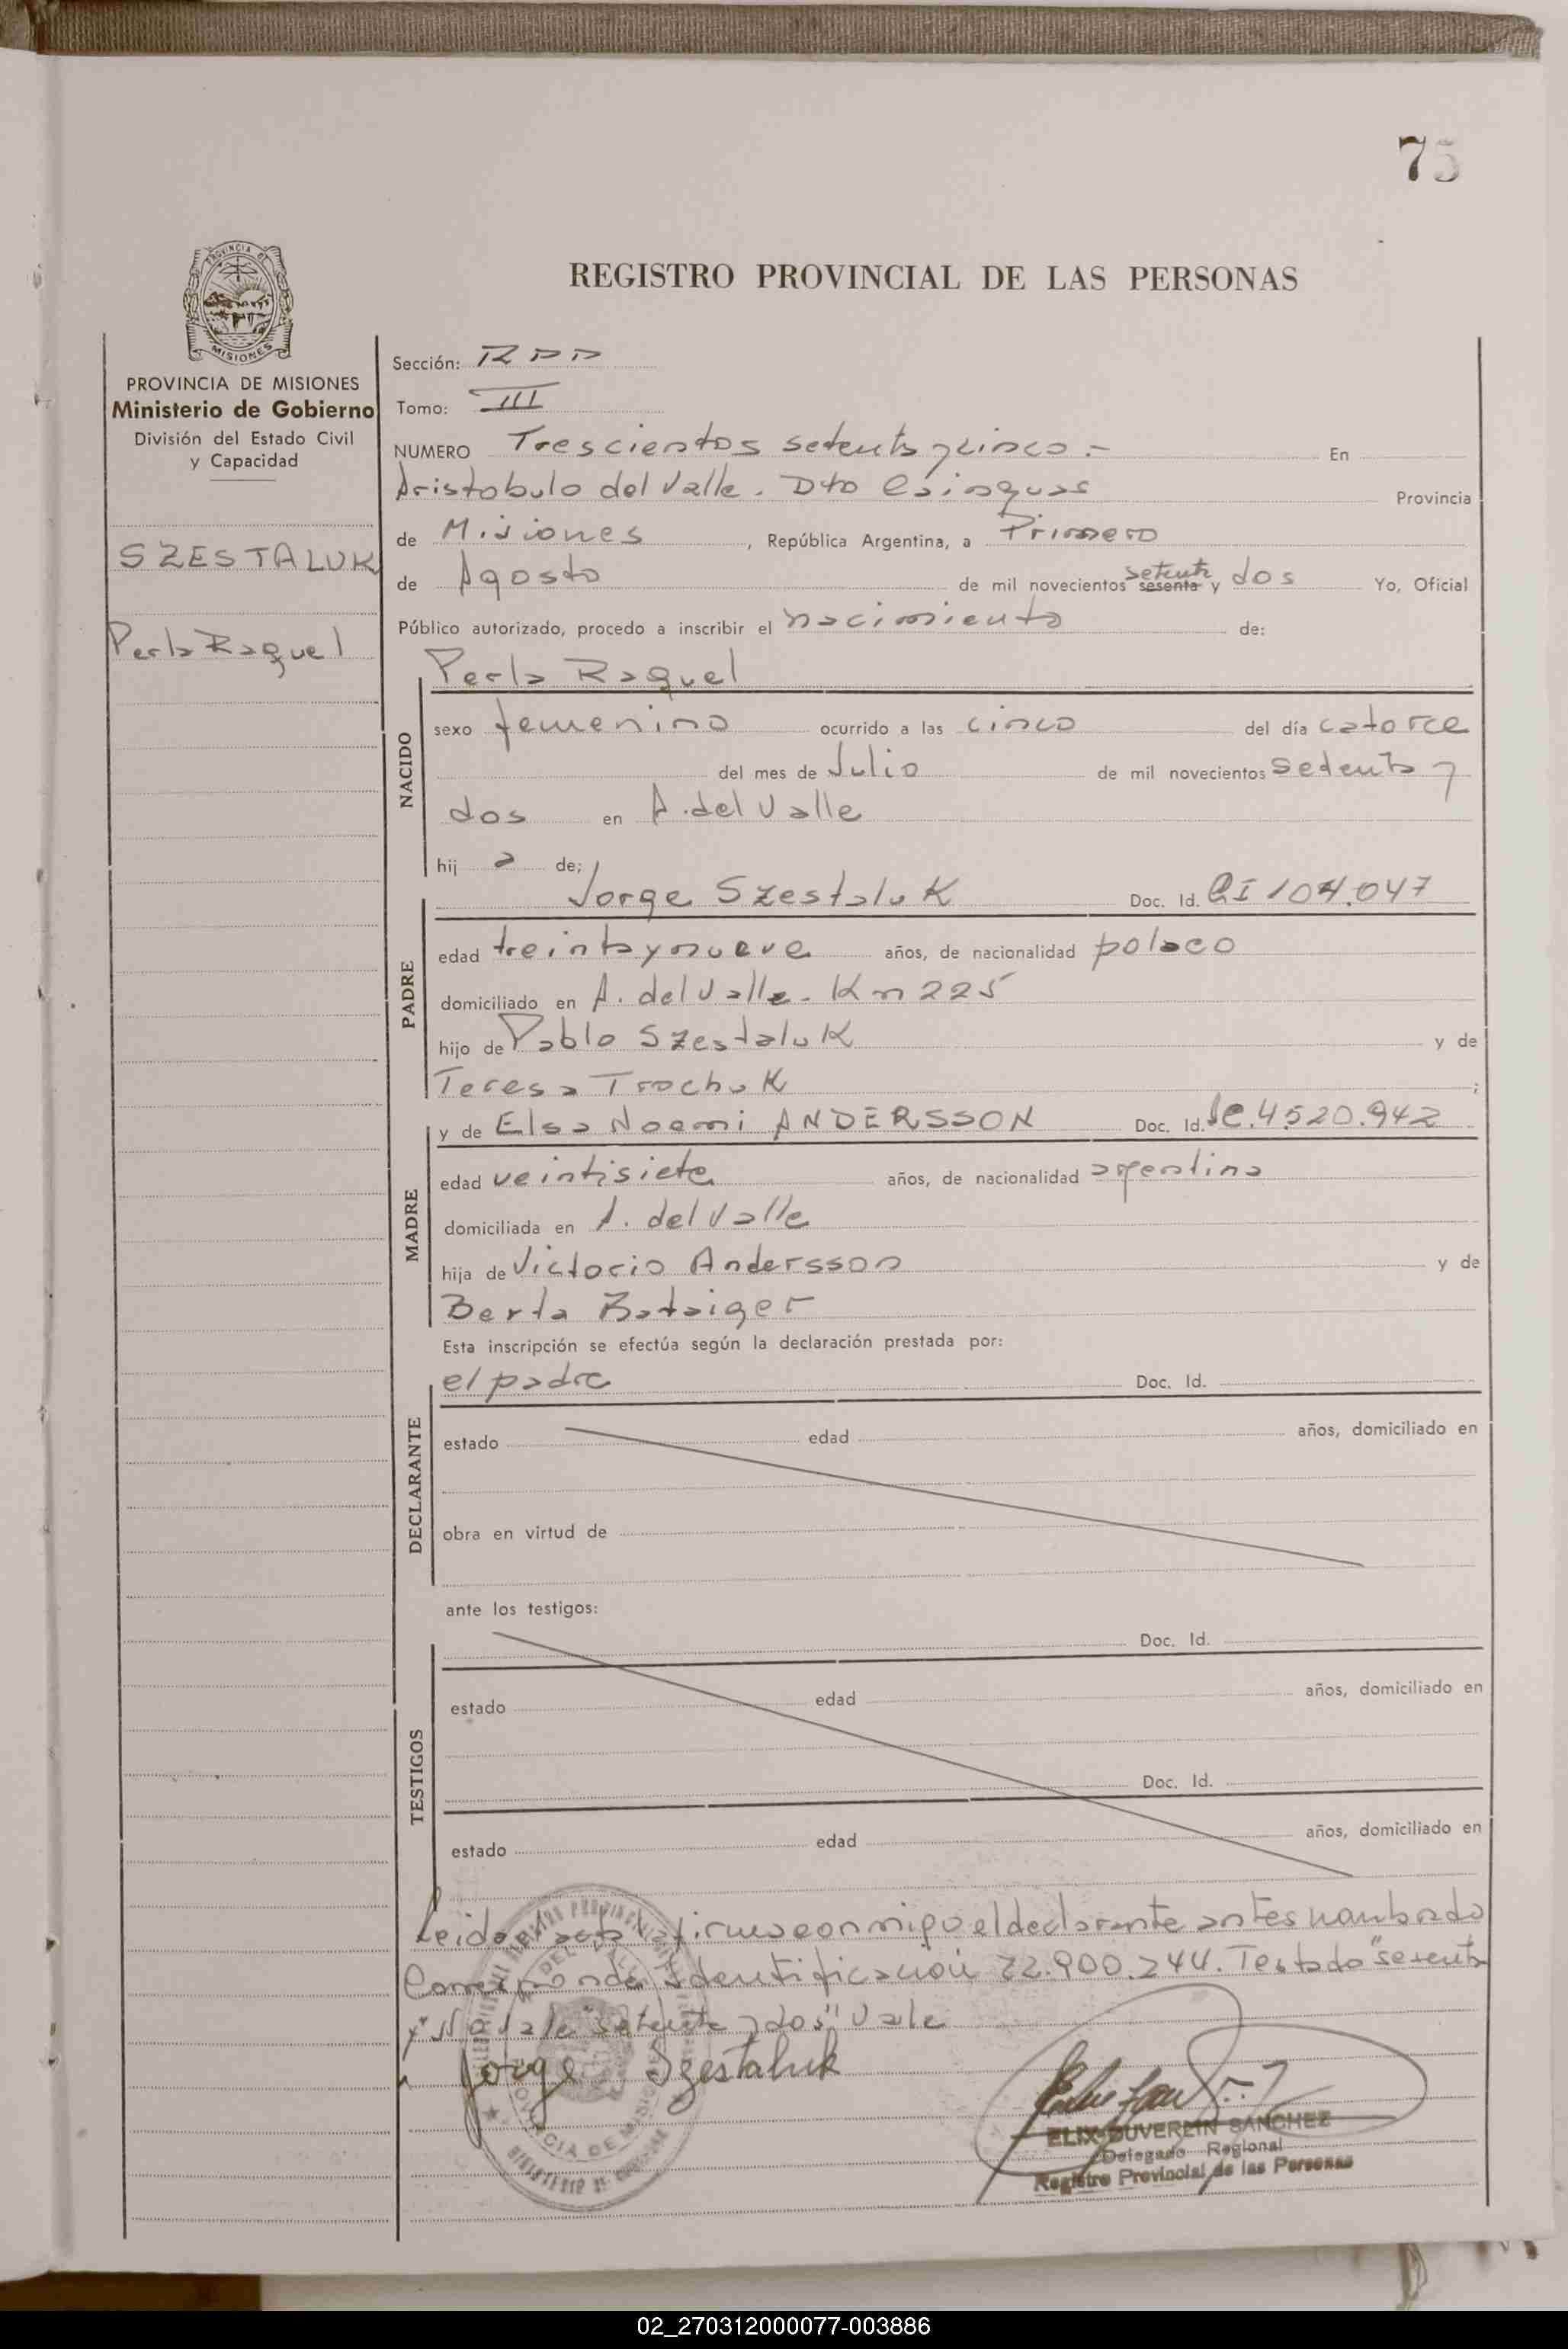 75
REGISTRO PROVINCIAL DE LAS PERSONAS
PROVINCIA DE MISIONES
Ministerio de Gobierno
División del Estado Civil
y Capacidad
SZESTALUK
Perla Raquel
Sección: RPP
Tomo: III
NUMERO Trescientos setenta y cinco.- En
Aristobulo del Valle. Dto Cainguas Provincia
de Misiones, República Argentina, a Primero
de Agosto de mil novecientos sesenta setenta y dos Yo, Oficial
Público autorizado, procedo a inscribir el nacimiento de:
Perla Raquel
NACIDO
sexo femenino ocurrido a las cinco del día catorce
del mes de Julio de mil novecientos setenta y
dos en A. del Valle
hij a de;
PADRE
Jorge Szestaluk Doc. Id. CI 104.047
edad treinta y nueve años, de nacionalidad polaco
domiciliado en A. del Valle. Km 225
hijo de Pablo Szestaluk y de
Teresa Trochuk ;
MADRE
y de Elsa Noemi ANDERSSON Doc. Id. Lc. 4.520.942
edad veintisiete años, de nacionalidad argentina
domiciliada en A. del Valle
hija de Victorio Andersson y de
Berta Bataiger
Esta inscripción se efectúa según la declaración prestada por:
DECLARANTE
el padre Doc. Id.
estado edad años, domiciliado en
obra en virtud de
ante los testigos:
TESTIGOS
Doc. Id.
estado edad años, domiciliado en
Doc. Id.
estado edad años, domiciliado en
Leida el acta la firma conmigo el declarante antes nombrado
Corresponde Identificación 22.900.244. Testado "sesenta
y" No vale "setenta y dos" Vale
Jorge Szestaluk
ELIX DUVERLIN SANCHEZ
Delegado Regional
Registro Provincial de las Personas
02_270312000077-003886